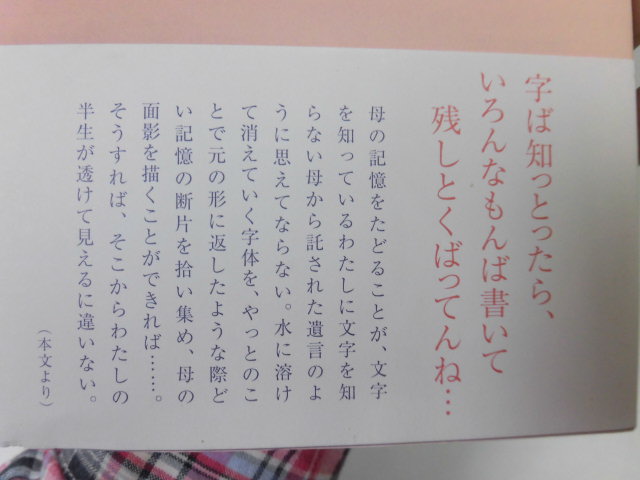 字ば知っとったら、
いろんなもんば書いて
残しとくばってんね…
母の記憶をたどることが、文字
を知っているわたしに文字を知
らない母から託された遺言のよ
うに思えてならない。水に溶け
て消えていく字体を、やっとのこ
とで元の形に返したような際ど
い記憶の断片を拾い集め、母の
面影を描くことができれば……。
そうすれば、そこからわたしの
半生が透けて見えるに違いない。
（本文より）